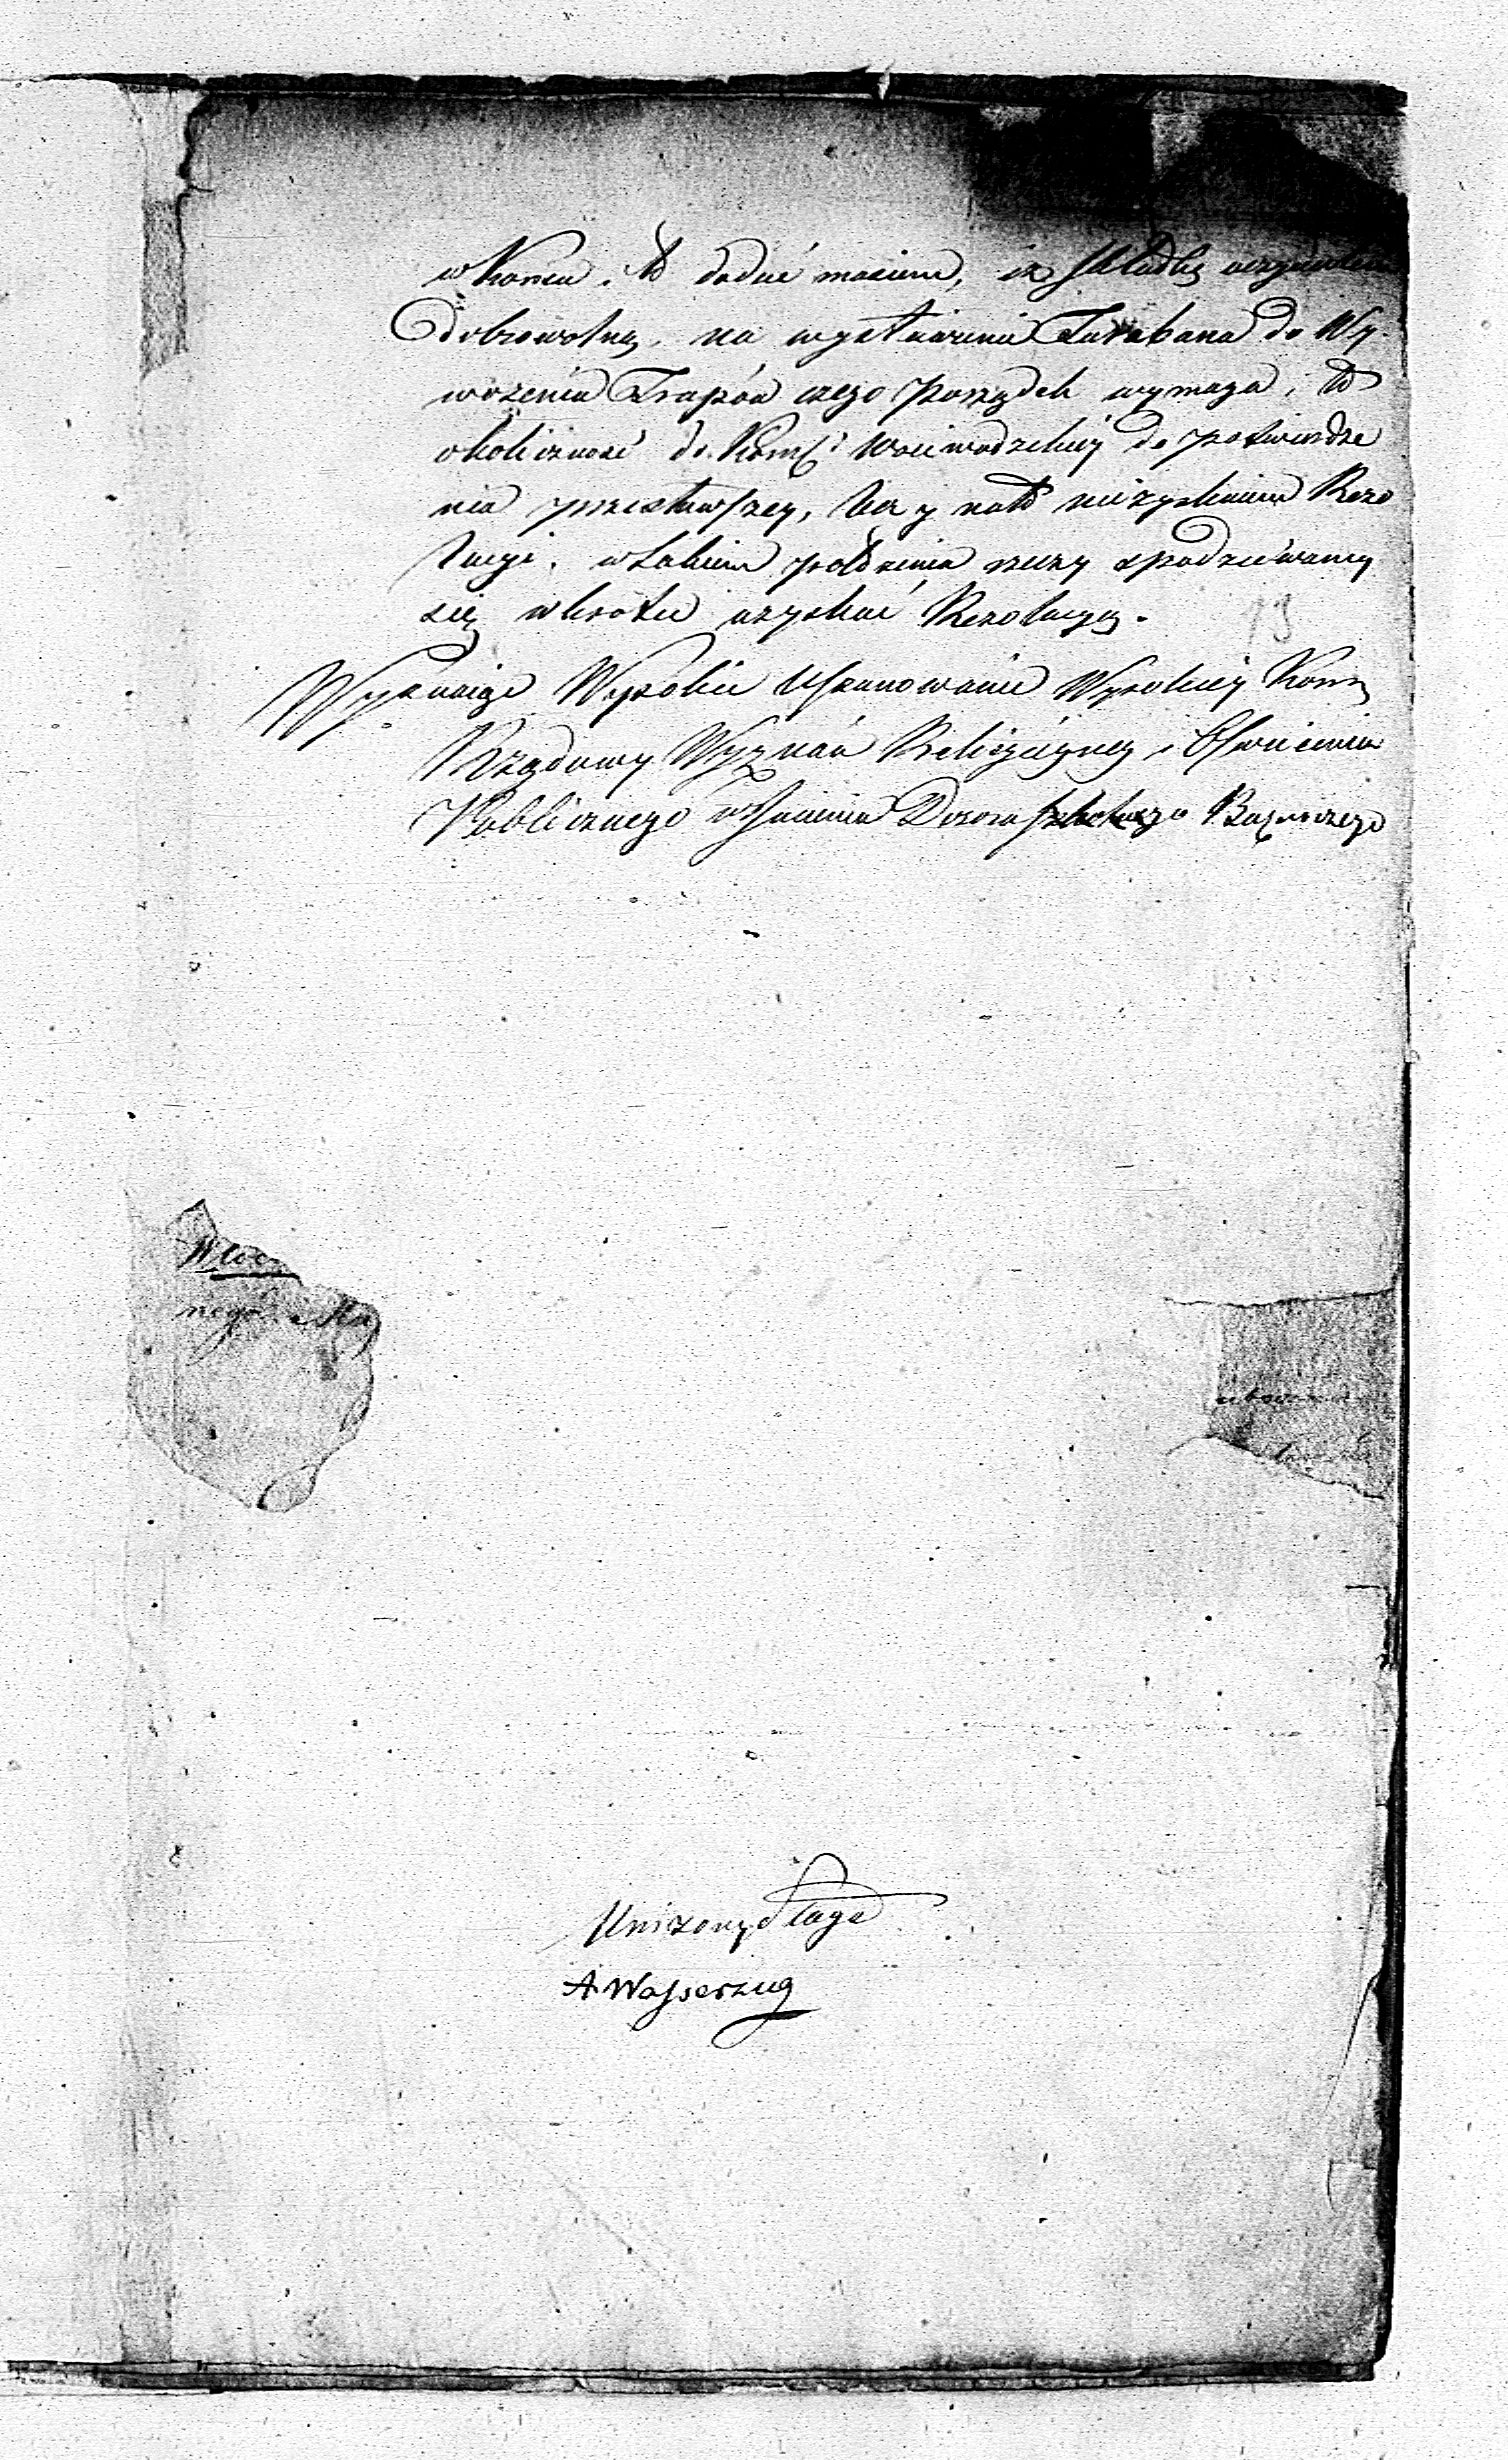 w Koncu. to dodać maiem, iż składkę uczyniliśmy
dobrowolną, na wystawienie Karabana do Wy-
wożenia Trupów czego porządek wymaga, to
okoliczność do Kom: Woiewodzkiey do potwierdze
nia przestawszey, lecz y na to niezyskaliem Rezo
lucyi. w takiem położeniu rzeczy spodziewamy
się wkrótce uzyskać Rezolucyą.
13
Wyznaiąc Wysokie Uszanowanie Wysokiey Kom
Rządowy Wyznań Religiynych i Oświecenia
Publicznego w Imieniu Dozoru Bużniczego
Uniżony Sługa
A Wasserzug